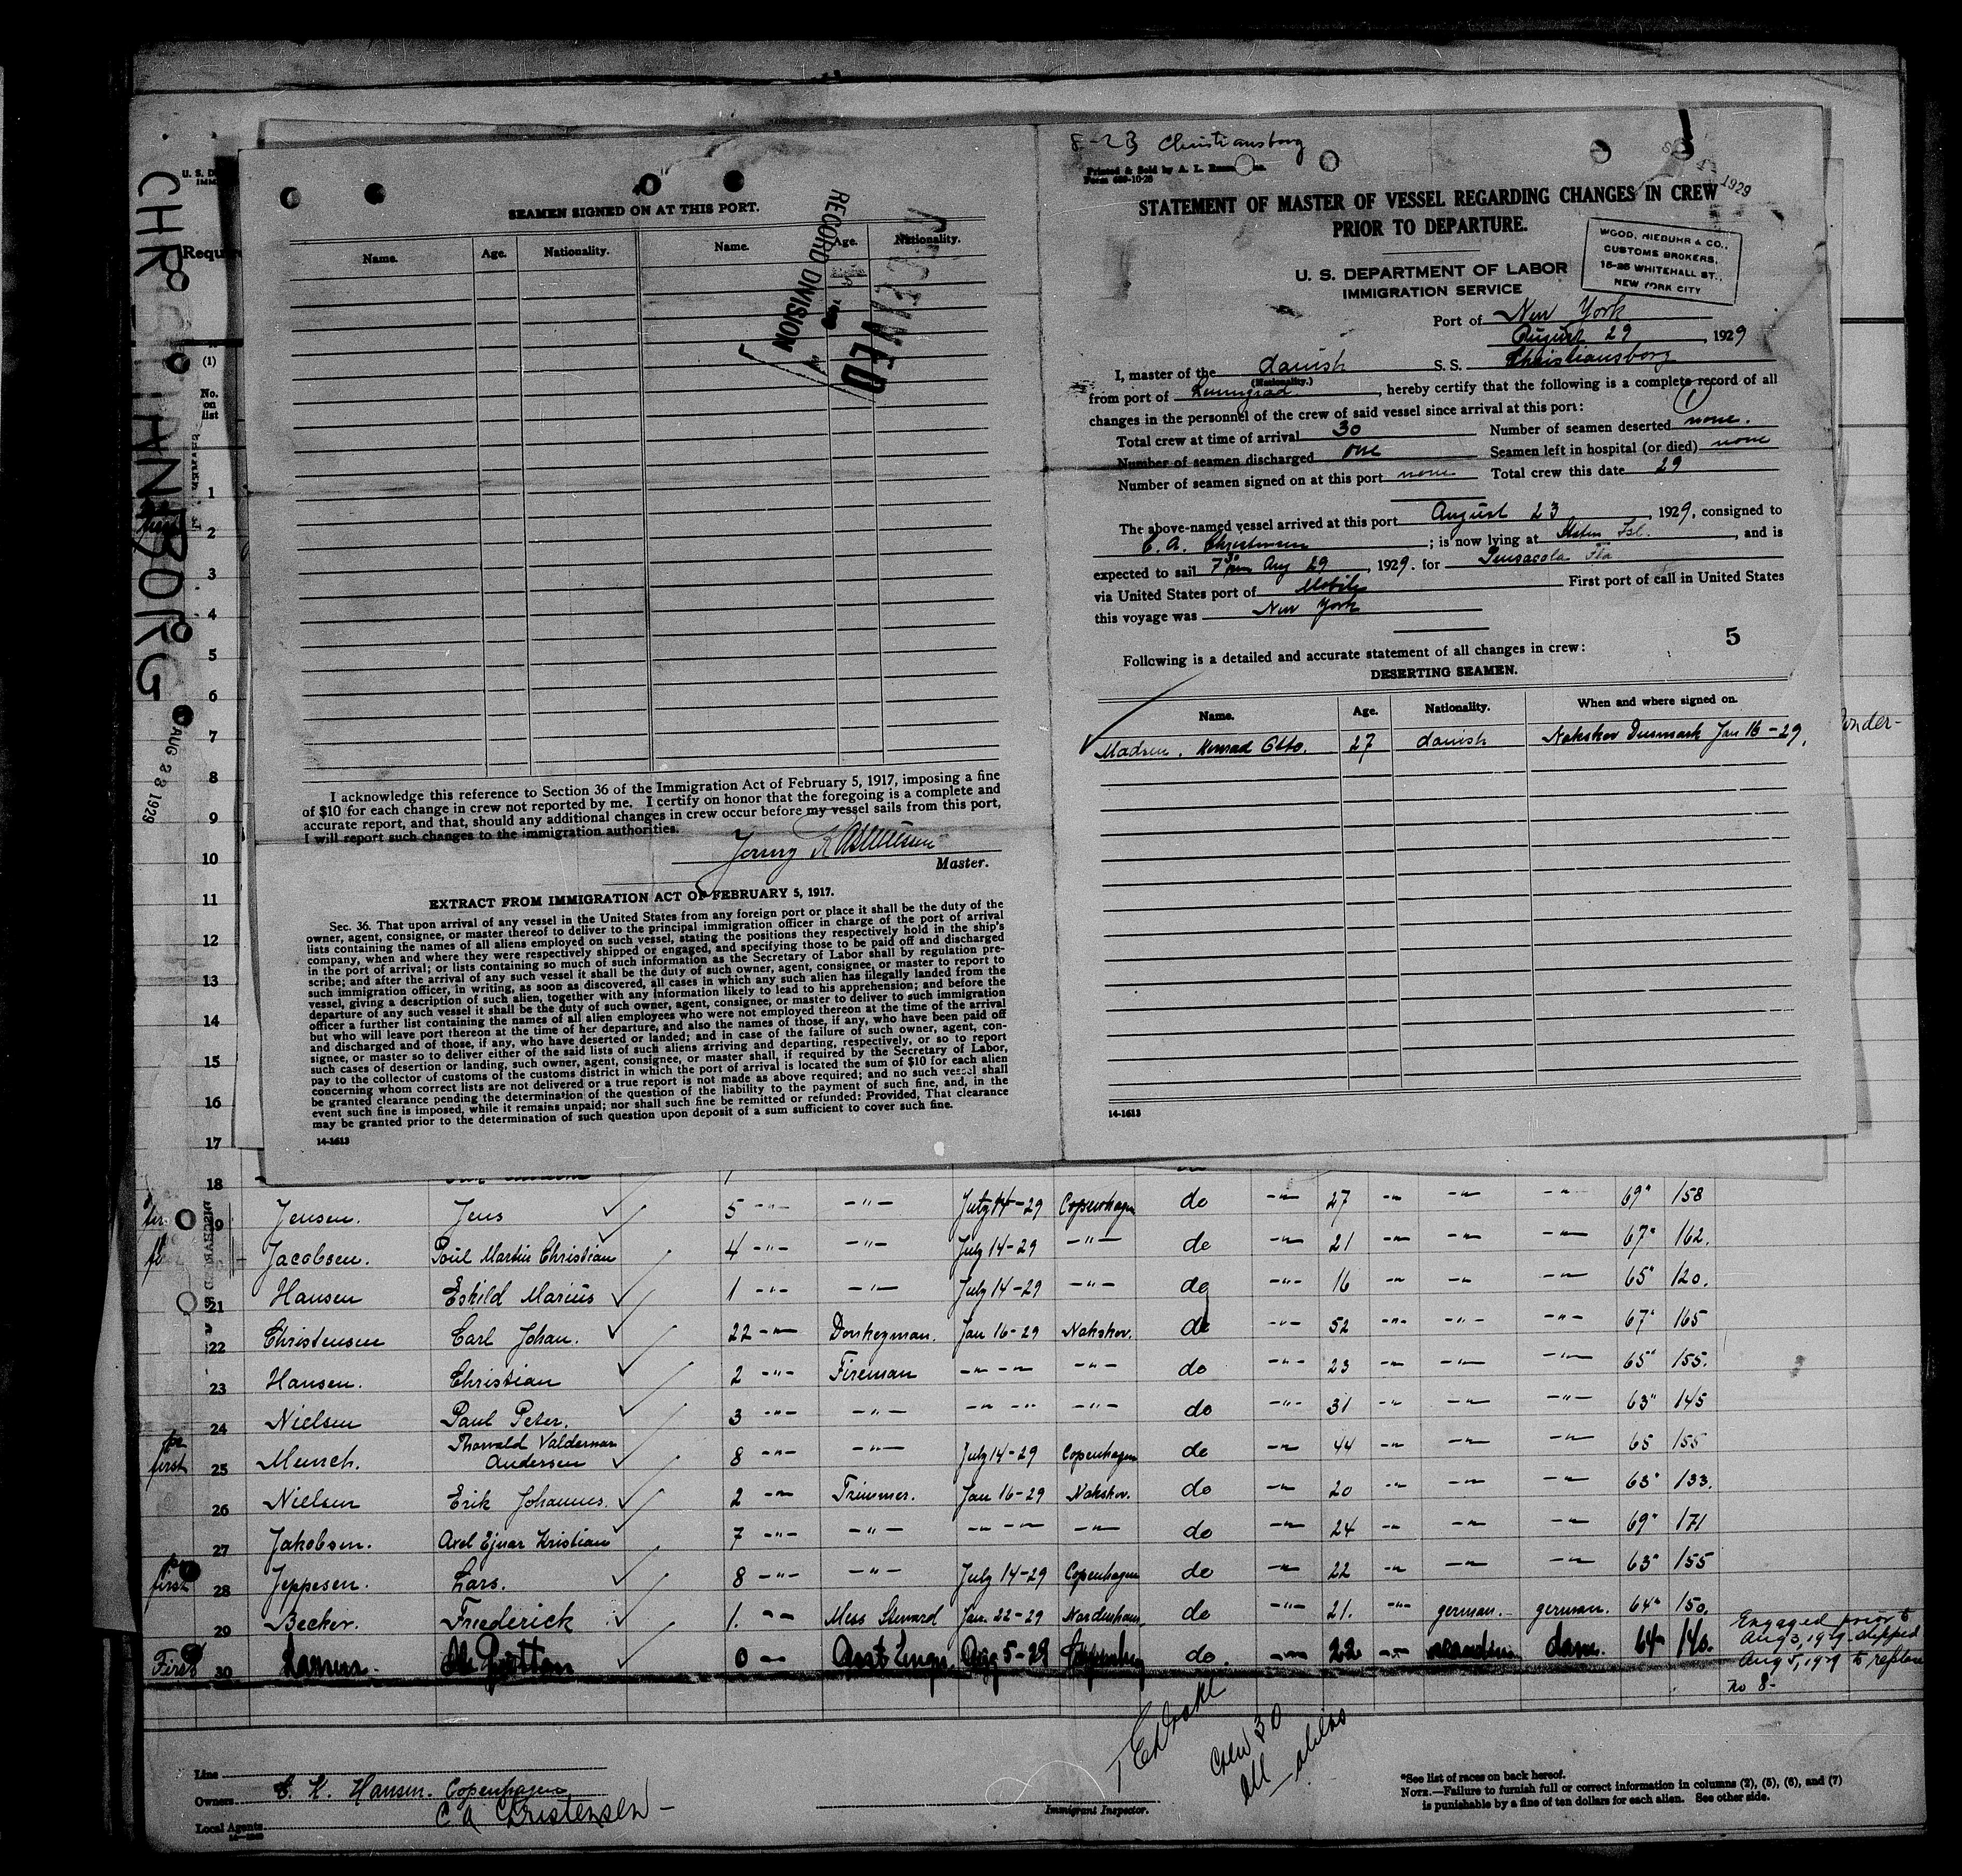 CHRISTIANSBORG
AUG 23 1929
(1)
No.
on
list
1
2
3
4
5
6
7
8
9
10
11
12
13
14
15
16
17
SEAMEN SIGNED ON AT THIS PORT.
Name. Age. Nationality. Name. Age. Nationality.
RECEIVED
RECORD DIVISION
I acknowledge this reference to Section 36 of the Immigration Act of February 5, 1917, imposing a fine
of $10 for each change in crew not reported by me. I certify on honor that the foregoing is a complete and
accurate report, and that, should any additional changes in crew occur before my vessel sails from this port,
I will report such changes to the immigration authorities.
Rasmussen
Master.
EXTRACT FROM IMMIGRATION ACT OF FEBRUARY 5, 1917.
Sec. 36. That upon arrival of any vessel in the United States from any foreign port or place it shall be the duty of the
owner, agent, consignee, or master thereof to deliver to the principal immigration officer in charge of the port of arrival
lists containing the names of all aliens employed on such vessel, stating the positions they respectively hold in the ship's
company, when and where they were respectively shipped or engaged, and specifying those to be paid off and discharged
in the port of arrival; or lists containing so much of such information as the Secretary of Labor shall by regulation pre-
scribe; and after the arrival of any such vessel it shall be the duty of such owner, agent, consignee, or master to report to
such immigration officer, in writing, as soon as discovered, all cases in which any such alien has illegally landed from the
vessel, giving a description of such alien, together with any information likely to lead to his apprehension; and before the
departure of any such vessel it shall be the duty of such owner, agent, consignee, or master to deliver to such immigration
officer a further list containing the names of all alien employees who were not employed thereon at the time of the arrival
but who will leave port thereon at the time of her departure, and also the names of those, if any, who have been paid off
and discharged and of those, if any, who have deserted or landed; and in case of the failure of such owner, agent, con-
signee, or master so to deliver either of the said lists of such aliens arriving and departing, respectively, or so to report
such cases of desertion or landing, such owner, agent, consignee, or master shall, if required by the Secretary of Labor,
pay to the collector of customs of the customs district in which the port of arrival is located the sum of $10 for each alien
concerning whom correct lists are not delivered or a true report is not made as above required; and no such vessel shall
be granted clearance pending the determination of the question of the liability to the payment of such fine, and, in the
event such fine is imposed, while it remains unpaid; nor shall such fine be remitted or refunded: Provided, That clearance
may be granted prior to the determination of such question upon deposit of a sum sufficient to cover such fine.
14-1613
8-23 Christiansborg
Printed & Sold by A. L.
Form 689-10-28
1929
STATEMENT OF MASTER OF VESSEL REGARDING CHANGES IN CREW
PRIOR TO DEPARTURE.
WOOD, NIEBUHR & CO.,
CUSTOMS BROKERS,
15-25 WHITEHALL ST.,
NEW YORK CITY
U. S. DEPARTMENT OF LABOR
IMMIGRATION SERVICE
Port of New York
August 29, 1929
I, master of the danish S. S. Christiansborg
(Nationality.)
from port of Leningrad, hereby certify that the following is a complete record of all
changes in the personnel of the crew of said vessel since arrival at this port:
Total crew at time of arrival 30 Number of seamen deserted none.
Number of seamen discharged one Seamen left in hospital (or died) none
Number of seamen signed on at this port none Total crew this date 29
The above-named vessel arrived at this port August 23, 1929, consigned to
C. A. Christensen; is now lying at Staten Isl., and is
expected to sail 7 30 pm Aug 29, 1929. for Pensacola Fla
via United States port of Mobile First port of call in United States
this voyage was New York
5
Following is a detailed and accurate statement of all changes in crew:
DESERTING SEAMEN.
Name. Age. Nationality. When and where signed on.
Madsen, Konrad Otto. 27 danish Nakskov Denmark Jan 16-29.
14-1613
18
19 Jensen. Jens 5 -"- -"- July 14-29 Copenhagen do -"- 27 -"- -"- -"- 69" 158
Jacobsen. Poul Martin Christian 4 -"- -"- July 14-29 -"- do -"- 21 -"- -"- -"- 67" 162.
21 Hansen Eskild Marius 1 -"- -"- July 14-29 -"- do -"- 16 -"- -"- -"- 65" 120.
22 Christensen Carl Johan. 22 -"- Donkeyman. Jan 16-29 Nakskov. do -"- 52 -"- -"- -"- 67" 165
23 Hansen. Christian 2 -"- Fireman -"- -"- -"- do -"- 23 -"- -"- -"- 65" 155.
24 Nielsen Paul Peter. 3 -"- -"- -"- -"- -"- do -"- 31 -"- -"- -"- 63" 145
first 25 Munch. Thorvald Valdemar Andersen 8 -"- -"- July 14-29 Copenhagen do -"- 44 -"- -"- -"- 65 155
26 Nielsen Erik Johannes. 2 -"- Trimmer. Jan 16-29 Nakskov. do -"- 20 -"- -"- -"- 63" 133.
27 Jakobsen. Axel Ejnar Kristian 7 -"- -"- -"- -"- -"- do -"- 24 -"- -"- -"- 69" 171
first 28 Jeppesen. Lars. 8 -"- -"- July 14-29 Copenhagen do -"- 22 -"- -"- -"- 63" 155
29 Becker. Friederick 1. -"- Mess Steward Jan. 22-29 Nordenham do -"- 21. -"- german. german. 64" 150.
First 30 0 -"- Asst Engr. Aug 5-29 Copenhag do. -"- 22 -"- dane. 64" 140.
Engaged prior to
Aug 3, 1929 shipped
Aug 5, 1929 to replace
no 8-
Crew 30
All aliens
Line
Owners C. K. Hansen. Copenhagen
Local Agents C A Christensen
Immigrant Inspector.
*See list of races on back hereof.
NOTE.—Failure to furnish full or correct information in columns (2), (5), (6), and (7)
is punishable by a fine of ten dollars for each alien. See other side.